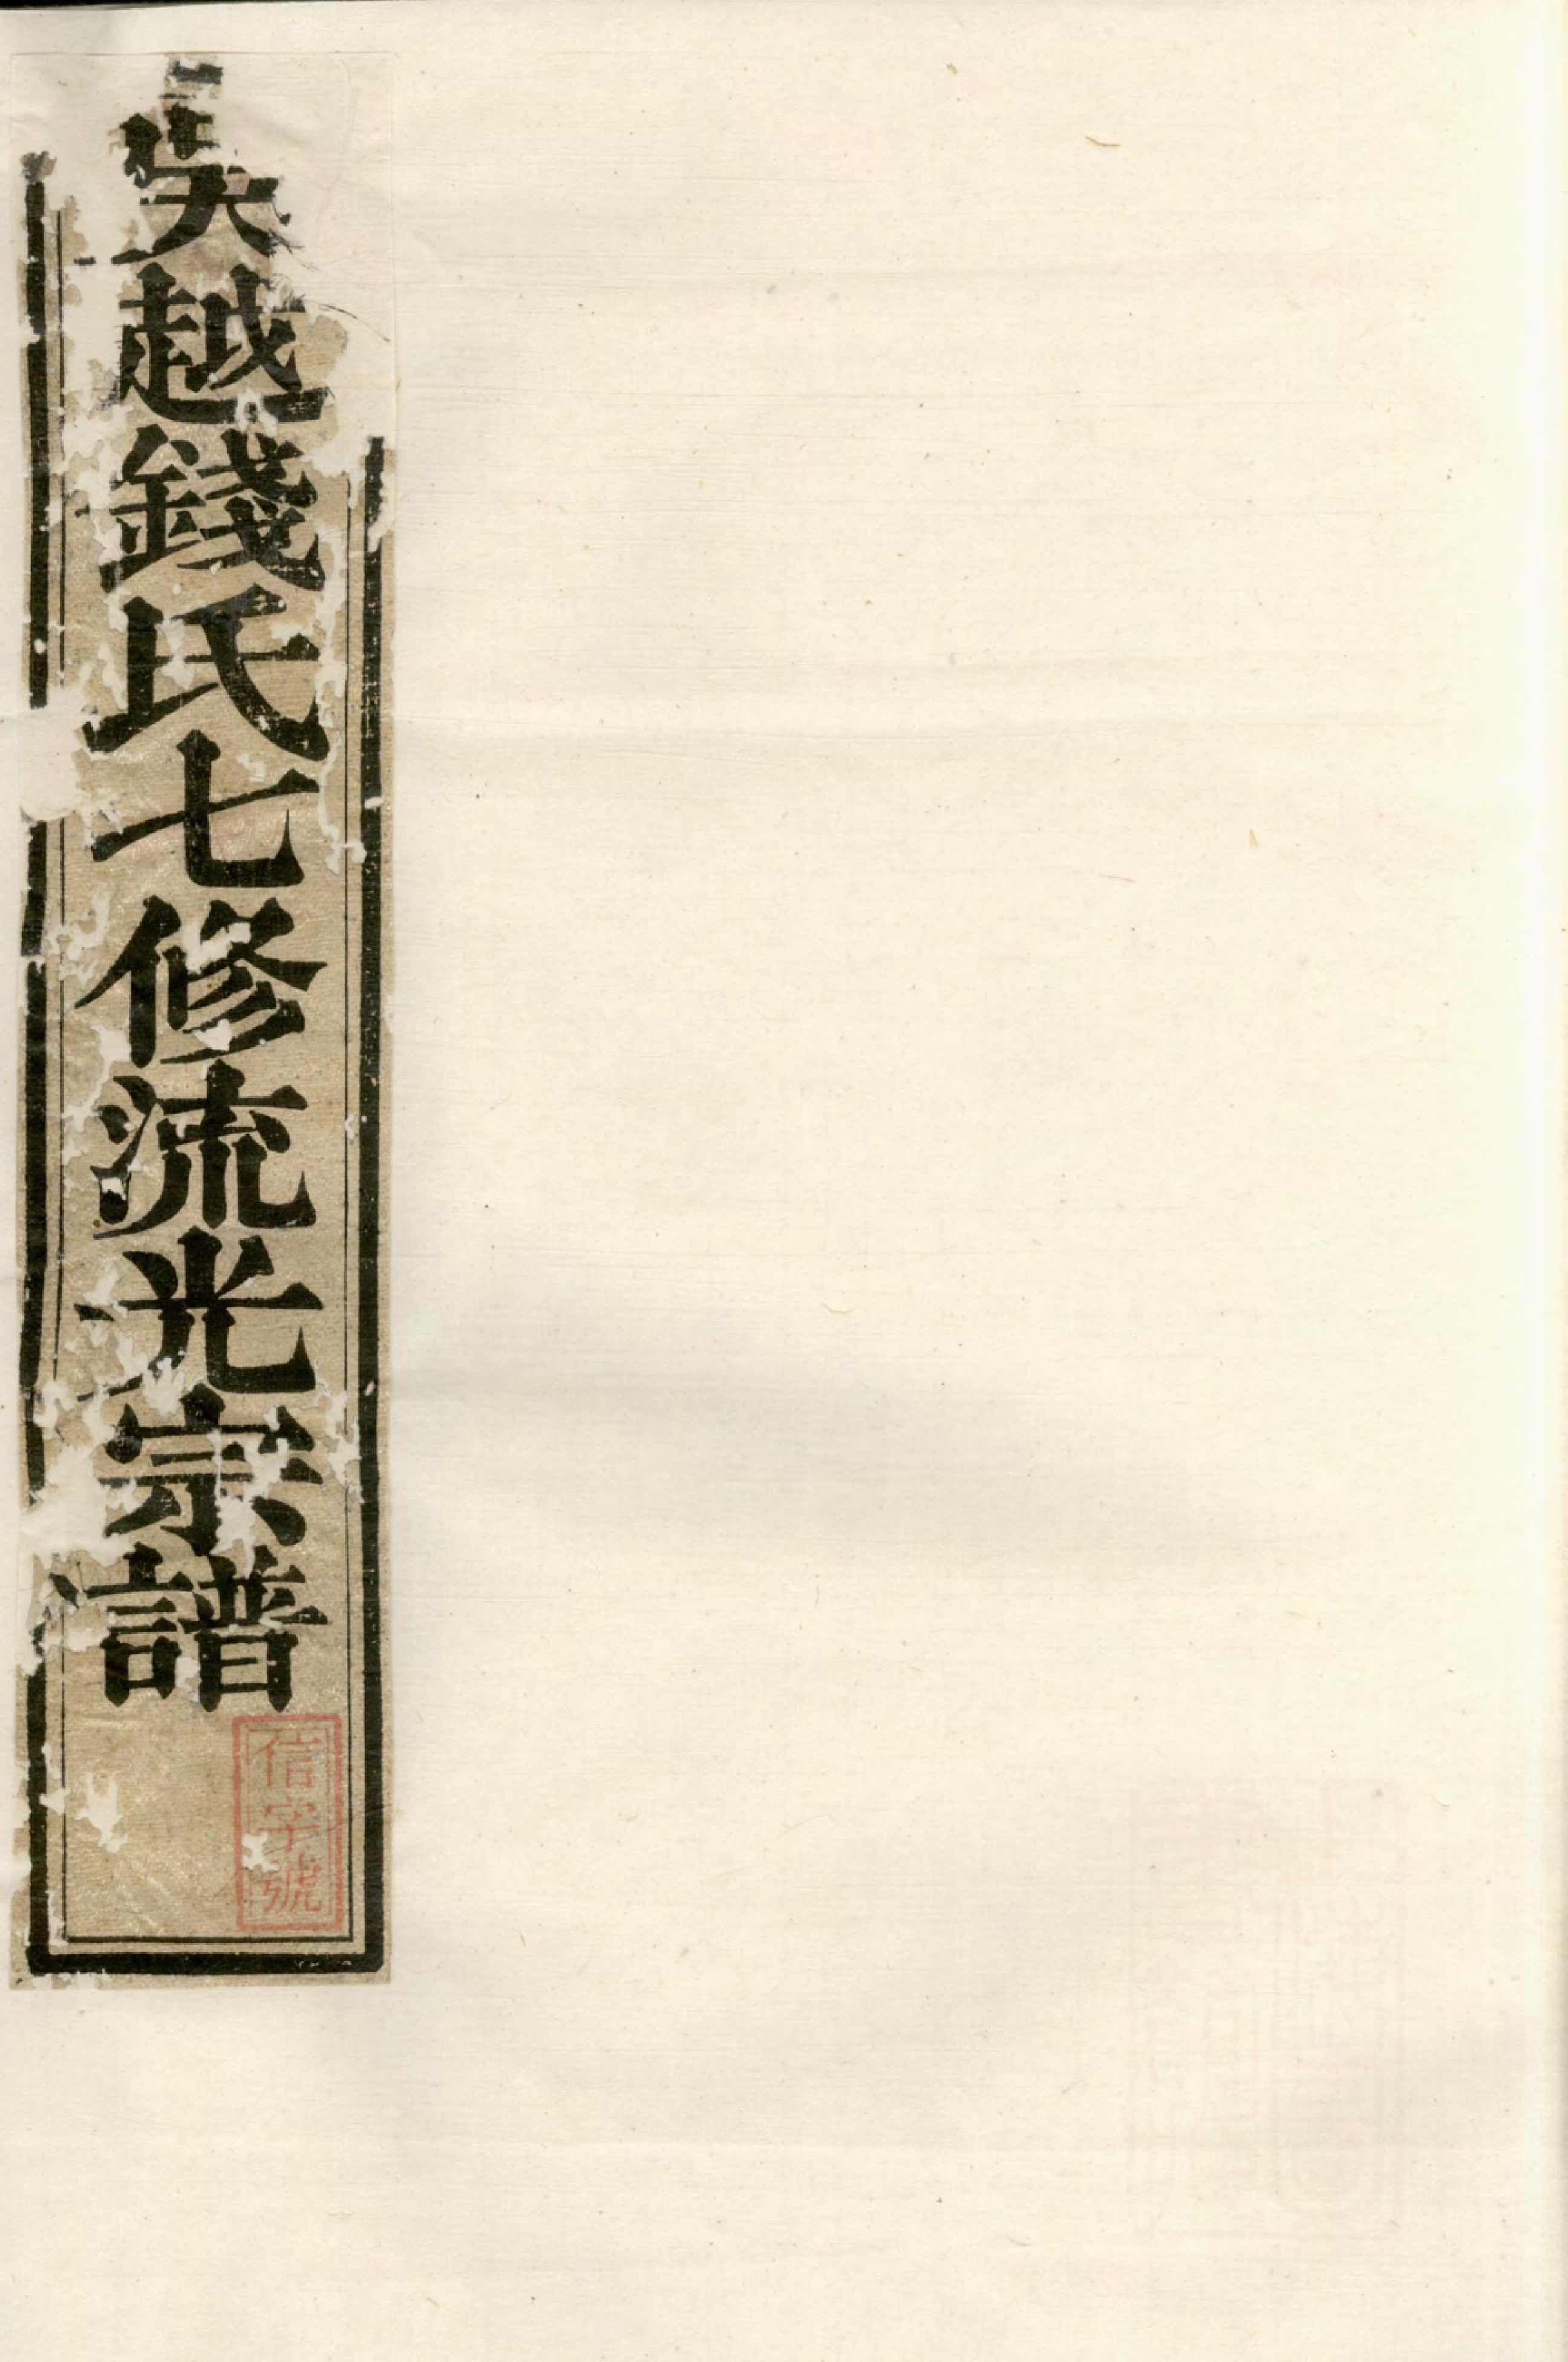 吳越錢氏七修流光宗譜
信字號